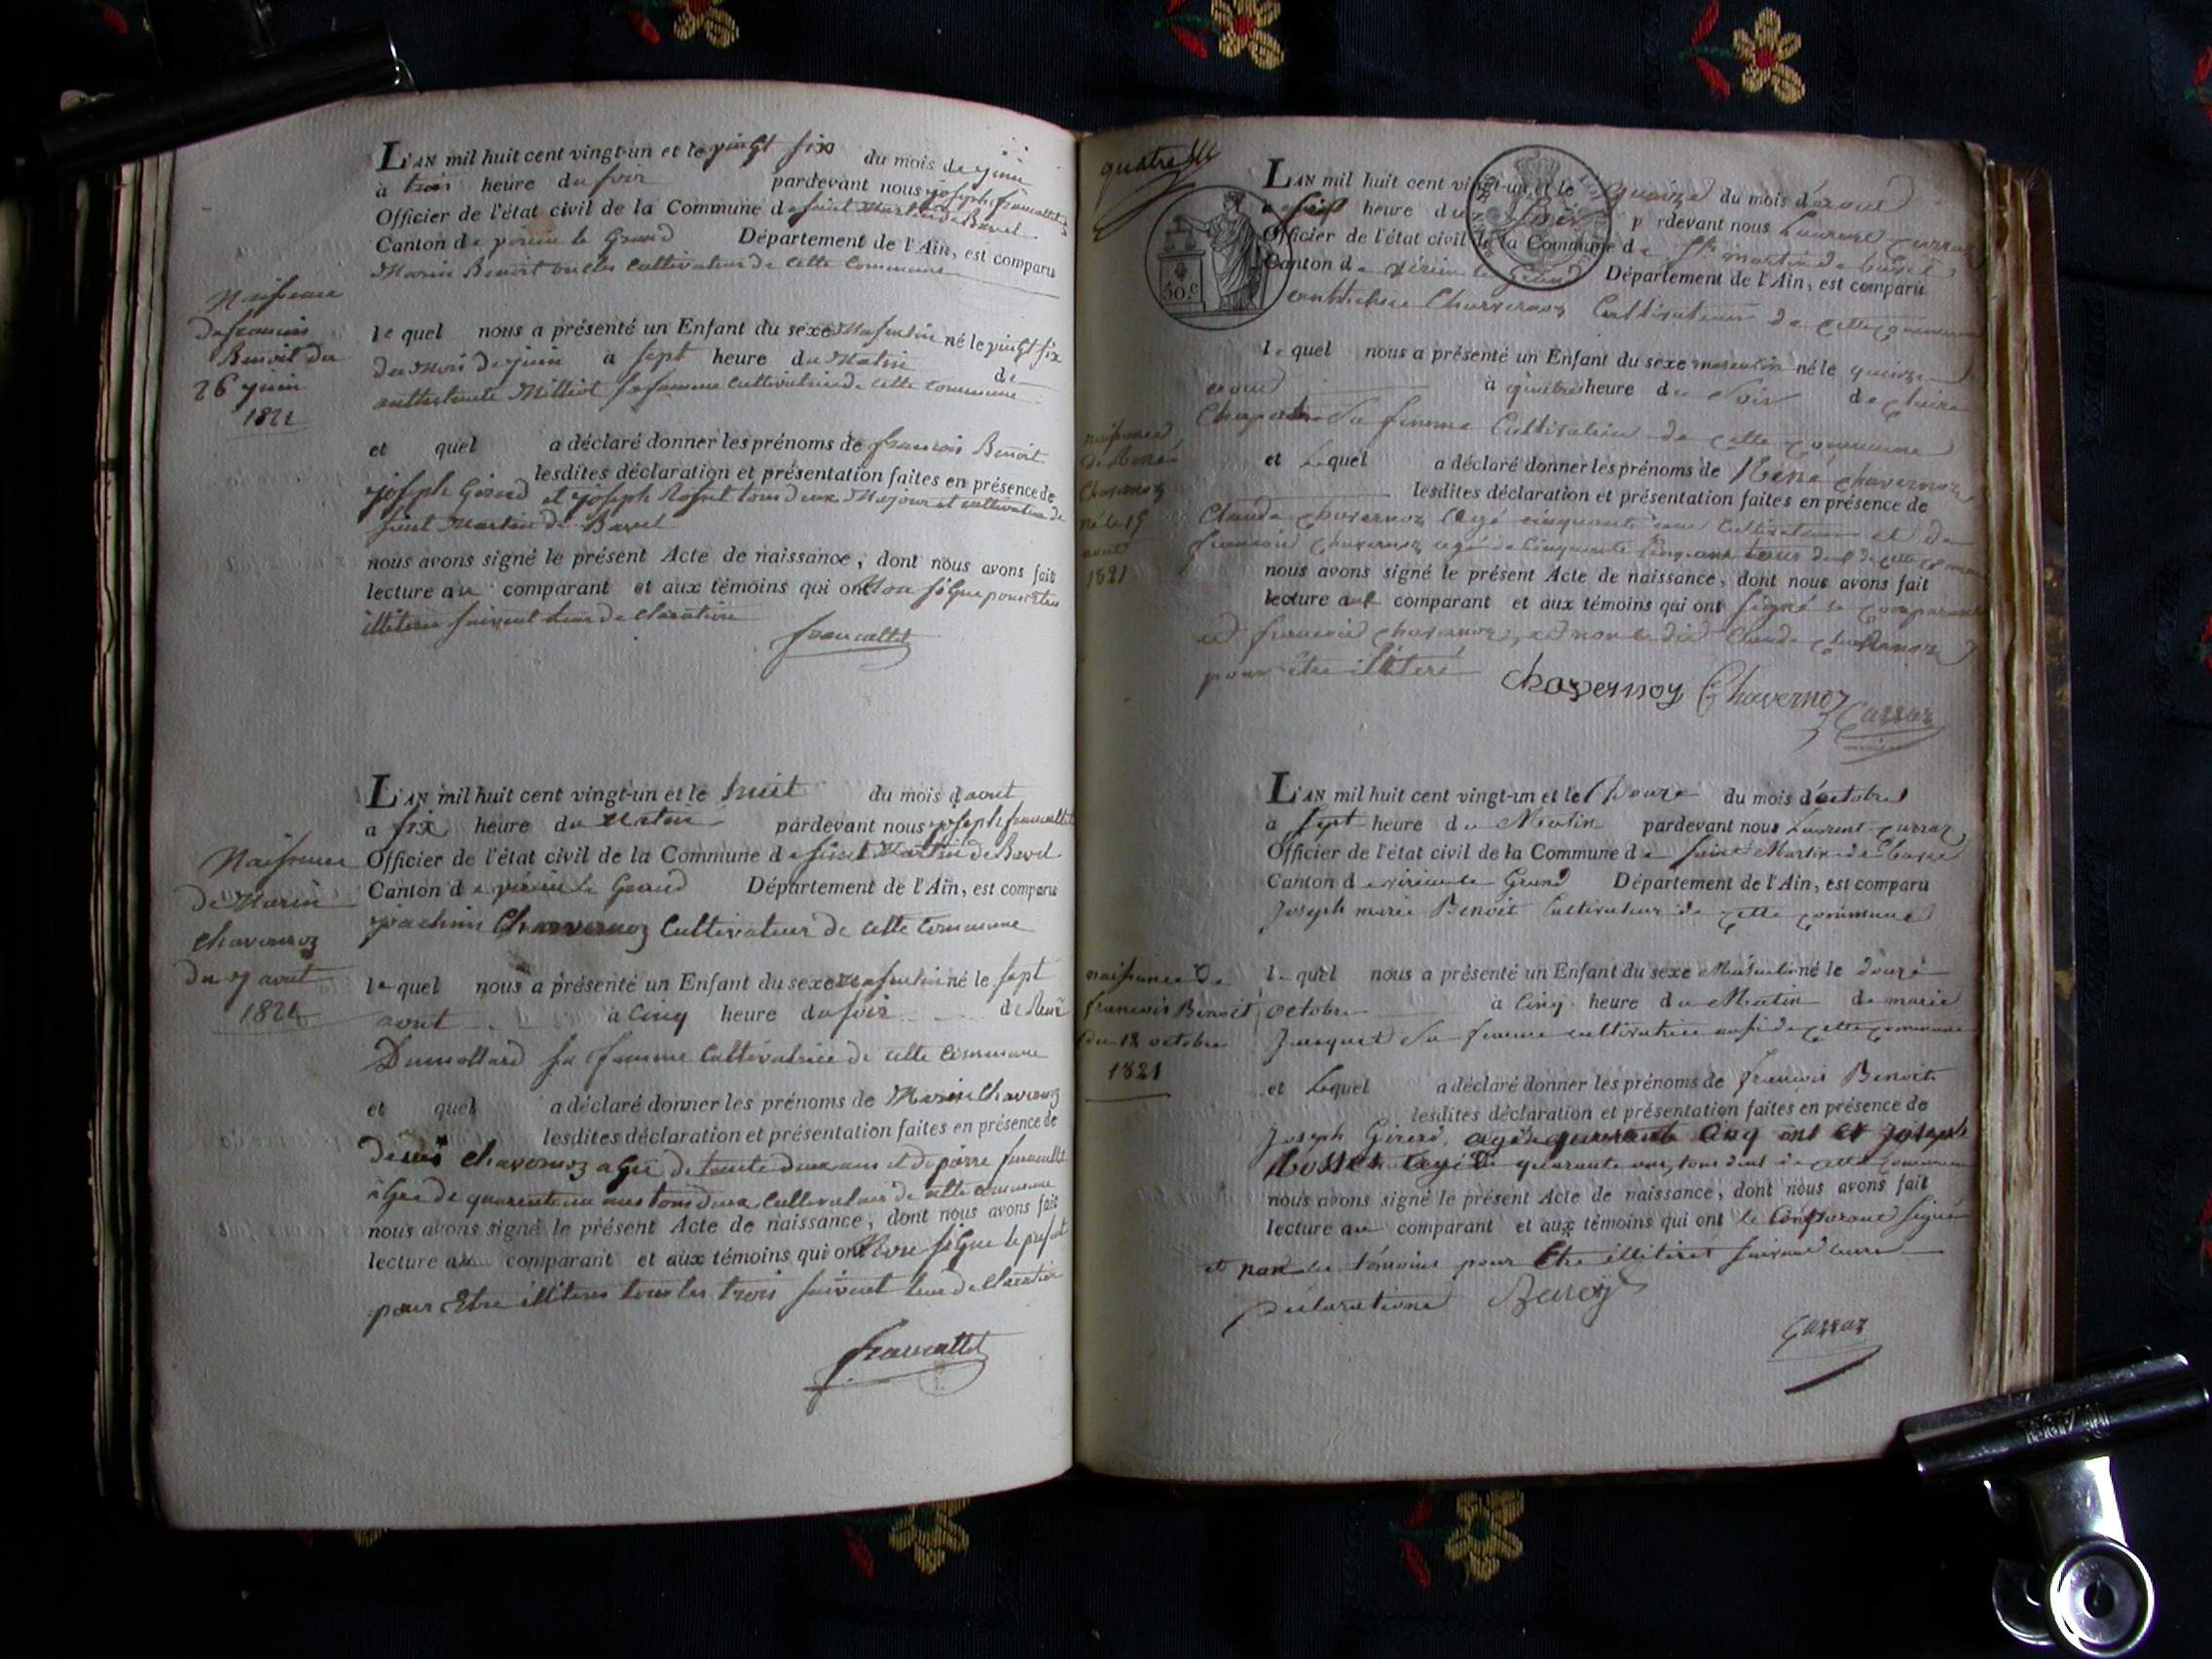 L'AN mil huit cent vingt-un et le vingt six du mois de juin
à trois heure du soir pardevant nous joseph francallet
Officier de l'état civil de la Commune de saint Martin de Bavel
Canton de virieu le Grand Département de l'Ain, est comparu
Marin Benoit cultivateur de cette commune
Naissance
de francois
Benoit du
26 juin
1821
le quel nous a présenté un Enfant du sexe Masculin né le vingt six
du Mois de juin à sept heure du Matin de
Milliet sa femme cultivatrice de cette commune
et quel a déclaré donner les prénoms de francois Benoit
lesdites déclaration et présentation faites en présence de
joseph Girerd et joseph Rosset tous deux Majour et cultivateur de
saint Martin de Bavel
nous avons signé le présent Acte de naissance, dont nous avons fait
lecture au comparant et aux témoins qui ont Non signe pour etre
illiteres suivant leur declaration
francallet
L'AN mil huit cent vingt-un et le huit du mois d'aout
a six heure du Matin pardevant nous joseph francallet
Officier de l'état civil de la Commune de saint Martin de Bavel
Canton de virieu le Grand Département de l'Ain, est comparu
joachim Chavernoz Cultivateur de cette commune
Naissance
de Marin
Chavernoz
du 7 aout
1821
le quel nous a présenté un Enfant du sexe Masculin né le sept
aout à cinq heure du soir de
Dumollard sa femme Cultivatrice de cette commune
et quel a déclaré donner les prénoms de Marin Chavernoz
lesdites déclaration et présentation faites en présence de
denis Chavernoz agé de trente deux ans et de pierre francallet
agé de quarente un ans tous deux Cultivateur de cette commune
nous avons signé le présent Acte de naissance, dont nous avons fait
lecture au comparant et aux témoins qui ont Non signe le present
pour Etre illiteres tous les trois suivent leur declaration
francallet
quatre
50.C
L'AN mil huit cent vingt-un et le quinze du mois d'aout
a six heure du soir p rdevant nous Laurent carraz
Officier de l'état civil de la Commune de St martin de bavel
Canton de virieu le Grand Département de l'Ain, est comparu
Chavernoz Cultivateur de cette commune
le quel nous a présenté un Enfant du sexe masculin né le quinze
aout à quatre heure du Soir de claire
Charpat Sa femme Cultivatrice de cette commune
naissance
de René
Chavernoz
né le 15
aout
1821
et Lequel a déclaré donner les prénoms de René chavernoz
lesdites déclaration et présentation faites en présence de
Claude chavernoz agé cinquante ans Cultivateur et de
francois chavernoz agé de cinquante cinq ans tous deux de cette commune
nous avons signé le présent Acte de naissance, dont nous avons fait
lecture aux comparant et aux témoins qui ont signé le comparant
et francois chavernoz, et non le dit Claude chavernoz
pour être illiteré
chavernoz Chavernoz
Carraz
L'AN mil huit cent vingt-un et le Douze du mois d'octobre
à sept heure du Matin pardevant nous Laurent carraz
Officier de l'état civil de la Commune de saint Martin de bavel
Canton de virieu le Grand Département de l'Ain, est comparu
Joseph marie Benoit Cultivateur de cette commune
naissance De
francois Benoit
du 12 octobre
1821
le quel nous a présenté un Enfant du sexe Masculin né le douze
octobre à cinq heure du Matin de marie
Jacquet Sa femme cultivatrice aussi de cette commune
et Lequel a déclaré donner les prénoms de francois Benoit
lesdites déclaration et présentation faites en présence de
Joseph Girerd, agé de quarante cinq ant et joseph
Rosset agé de quarante ans, tous deux de cette commune
nous avons signé le présent Acte de naissance, dont nous avons fait
lecture au comparant et aux témoins qui ont le Comparant signé
et non les témoins pour Etre illiteres suivant leurs
declarations Benoit
Carraz